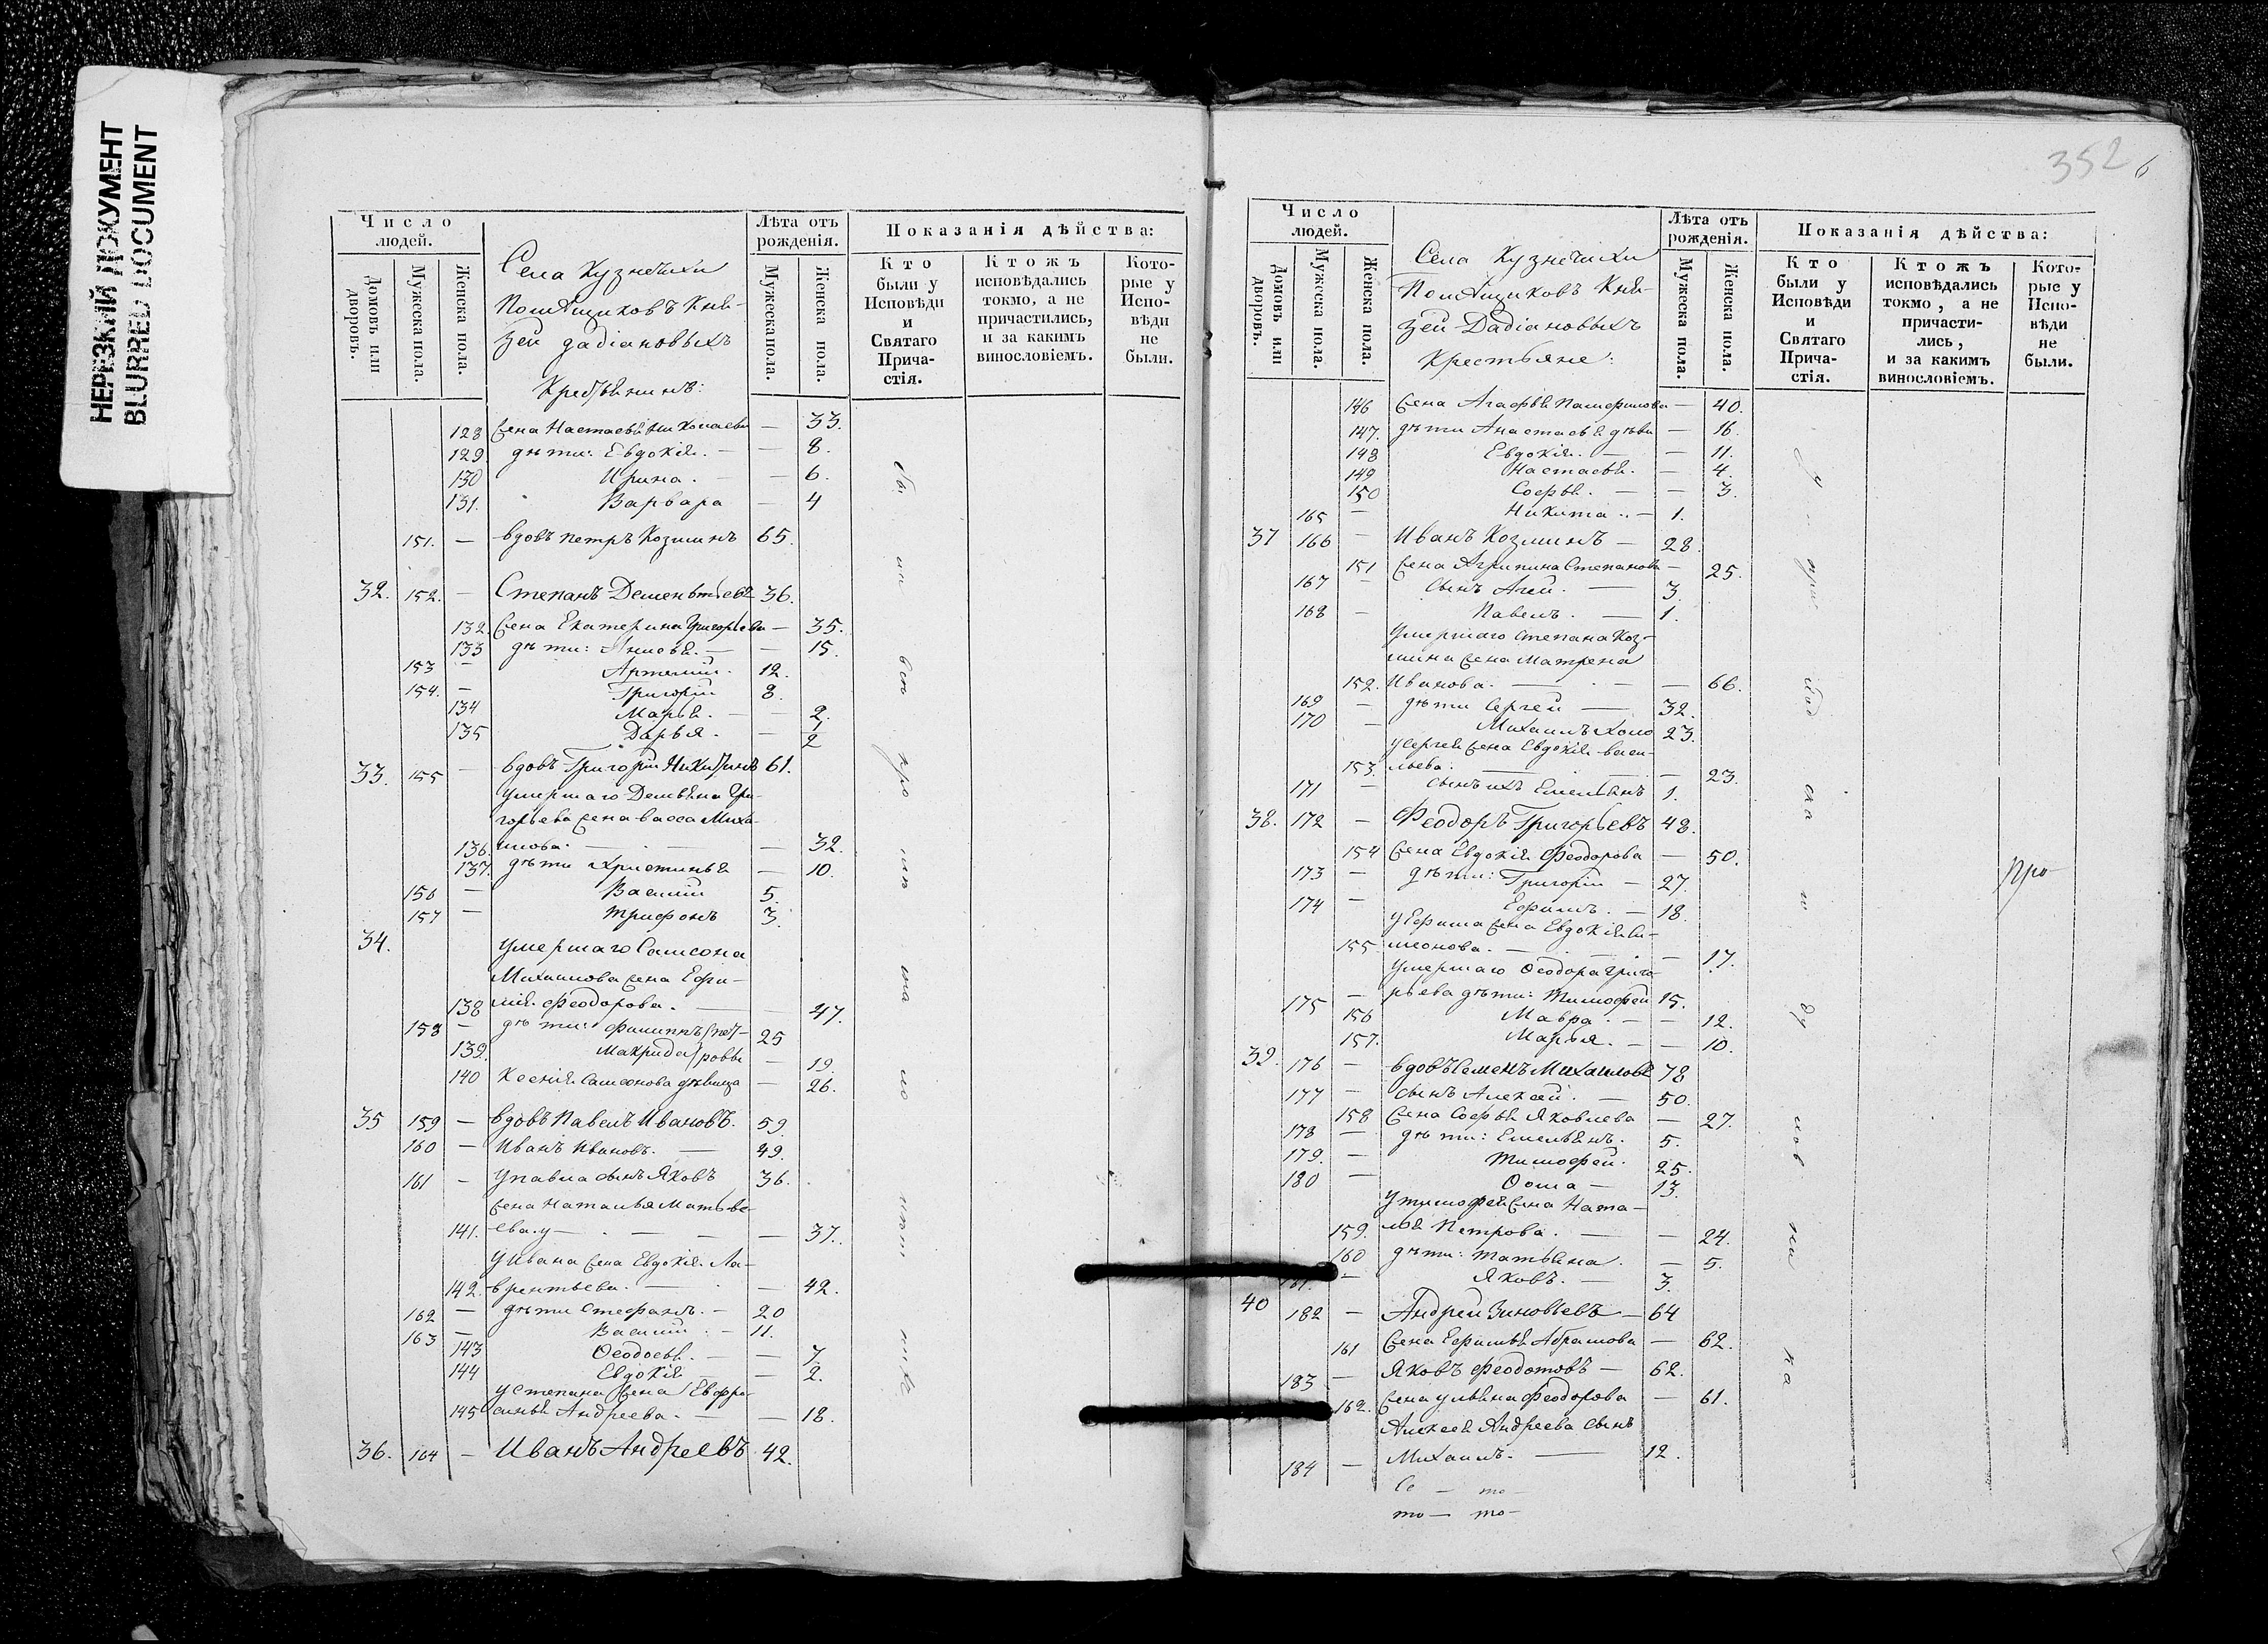 НЕРЕЗКИЙ ДОКУМЕНТ
BLURRED DOCUMENT
Число людей.
Домовъ или дворовъ.
Мужеска пола.
Женска пола.
Села Кузнечихи
Помѣщиковъ Кня-
зей Дадіановыхъ
Крестьянинъ:
Лѣта отъ рожденія.
Мужеска пола.
Женска пола.
Показанія дѣйства:
Кто были у Исповѣди и Святаго Прича-стія.
Ктожъ исповѣдались токмо, а не причастились, и за какимъ винословіемъ.
Кото-рые у Испо-вѣди не были.
128 жена Настасья Николаева — 33.
129 дѣти: Евдокія. — — 8.
130 Ирина. — — 6.
131. Варвара — 4
151. — вдовъ Петръ Козминъ 65.
32. 152. — Степанъ Дементьевъ 36.
132. жена Екатерина Григорьева — 35.
133 дѣти: Анисья. — — 15.
153 — Артемій. 12.
154. — Григорій 8.
134 Марья. — — 2.
135 Дарья. — 1/2
33. 155 — вдовъ Григорій Никитинъ 61.
умершаго Демьяна Гри-
горьева жена Васса Миха-
136. илова. — — — 32.
137. дѣти Христинья — 10.
156 — Василій 5.
157 — Трифонъ 3.
34. умершаго Самсона
Михаилова жена Ефи-
138 мія Феодорова. — — 47.
158 — дѣти: Филиппъ Пет- 25
139. Макрида ровы — 19.
140 Ксенія Самсонова дѣвица — 26.
35 159 — вдовъ Павелъ Ивановъ. 59.
160 — Иванъ Ивановъ. — 49.
161 — У Павла сынъ Яковъ 36.
жена Наталья Матвѣ-
141. ева. — — — 37.
У Ивана жена Евдокія Ла-
142. врентьева. — — 42.
162 — дѣти Стефанъ. — 20
163 — Василій. — 11.
143 Ѳеодосья. — — 7
144 Евдокія — 2.
у Степана жена Евфро-
145 синья Андреева. — — 18.
36. 164 — Иванъ Андреевъ 42.
352
6
Число людей.
Домовъ или дворовъ.
Мужеска пола.
Женска пола.
Села Кузнечихи
Помѣщиковъ Кня-
зей Дадіановыхъ
Крестьяне:
Лѣта отъ рожденія.
Мужеска пола.
Женска пола.
Показанія дѣйства:
Кто были у Исповѣди и Святаго Прича-стія.
Ктожъ исповѣдались токмо, а не причасти-лись, и за какимъ винословіемъ.
Кото-рые у Испо-вѣди не были.
146 жена Агафья Памфилова — 40.
147. дѣти Анастасья дѣви — 16.
148 Евдокія. — — 11.
149 Настасья. — 4.
150 Софья. — — 3.
165 — Никита. — 1.
37 166 — Иванъ Козминъ — 28.
151 жена Агрипина Степанова — 25.
167 — сынъ Агей. — 3.
168 — Павелъ. — 1.
Умершаго Степана Коз-
мина жена Матрена
152. Иванова. — — — 66.
169 — дѣти Сергей — 32.
170 — Михаилъ холо 23.
у Сергея жена Евдокія Васи-
153. льева. — — 23.
171 — сынъ ихъ Емельянъ 1.
38. 172 — Феодоръ Григорьевъ 48.
154 жена Евдокія Феодорова — 50.
173 — дѣти: Григорій — 27.
174 — Ефимъ. — 18.
у Ефима жена Евдокія Си-
155 меонова. — — — 17.
умершаго Ѳеодора Григо-
175 — рьева дѣти: Тимофей 15.
156 Мавра. — — 12.
157. Марья. — — 10.
39. 176 — вдовъ Семенъ Михаиловъ 78
177 — сынъ Алексей. — 50.
158 жена Софья Яковлева — 27.
178 — дѣти: Емельянъ. 5.
179. — Тимофей. 25.
180 — Ѳома — 13.
у Тимофея жена Ната-
159. лья Петрова. — — 24.
160 дѣти: Татьяна. — 5.
181. — Яковъ. — 3.
40 182 — Андрей Зиновьевъ — 64
161 жена Ефимья Абрамова — 62.
183 — Яковъ Феодотовъ — 62.
162. жена Ульяна Феодорова — 61.
Алексея Андреева сынъ
184 — Михаилъ. — 12.
то — то —
про